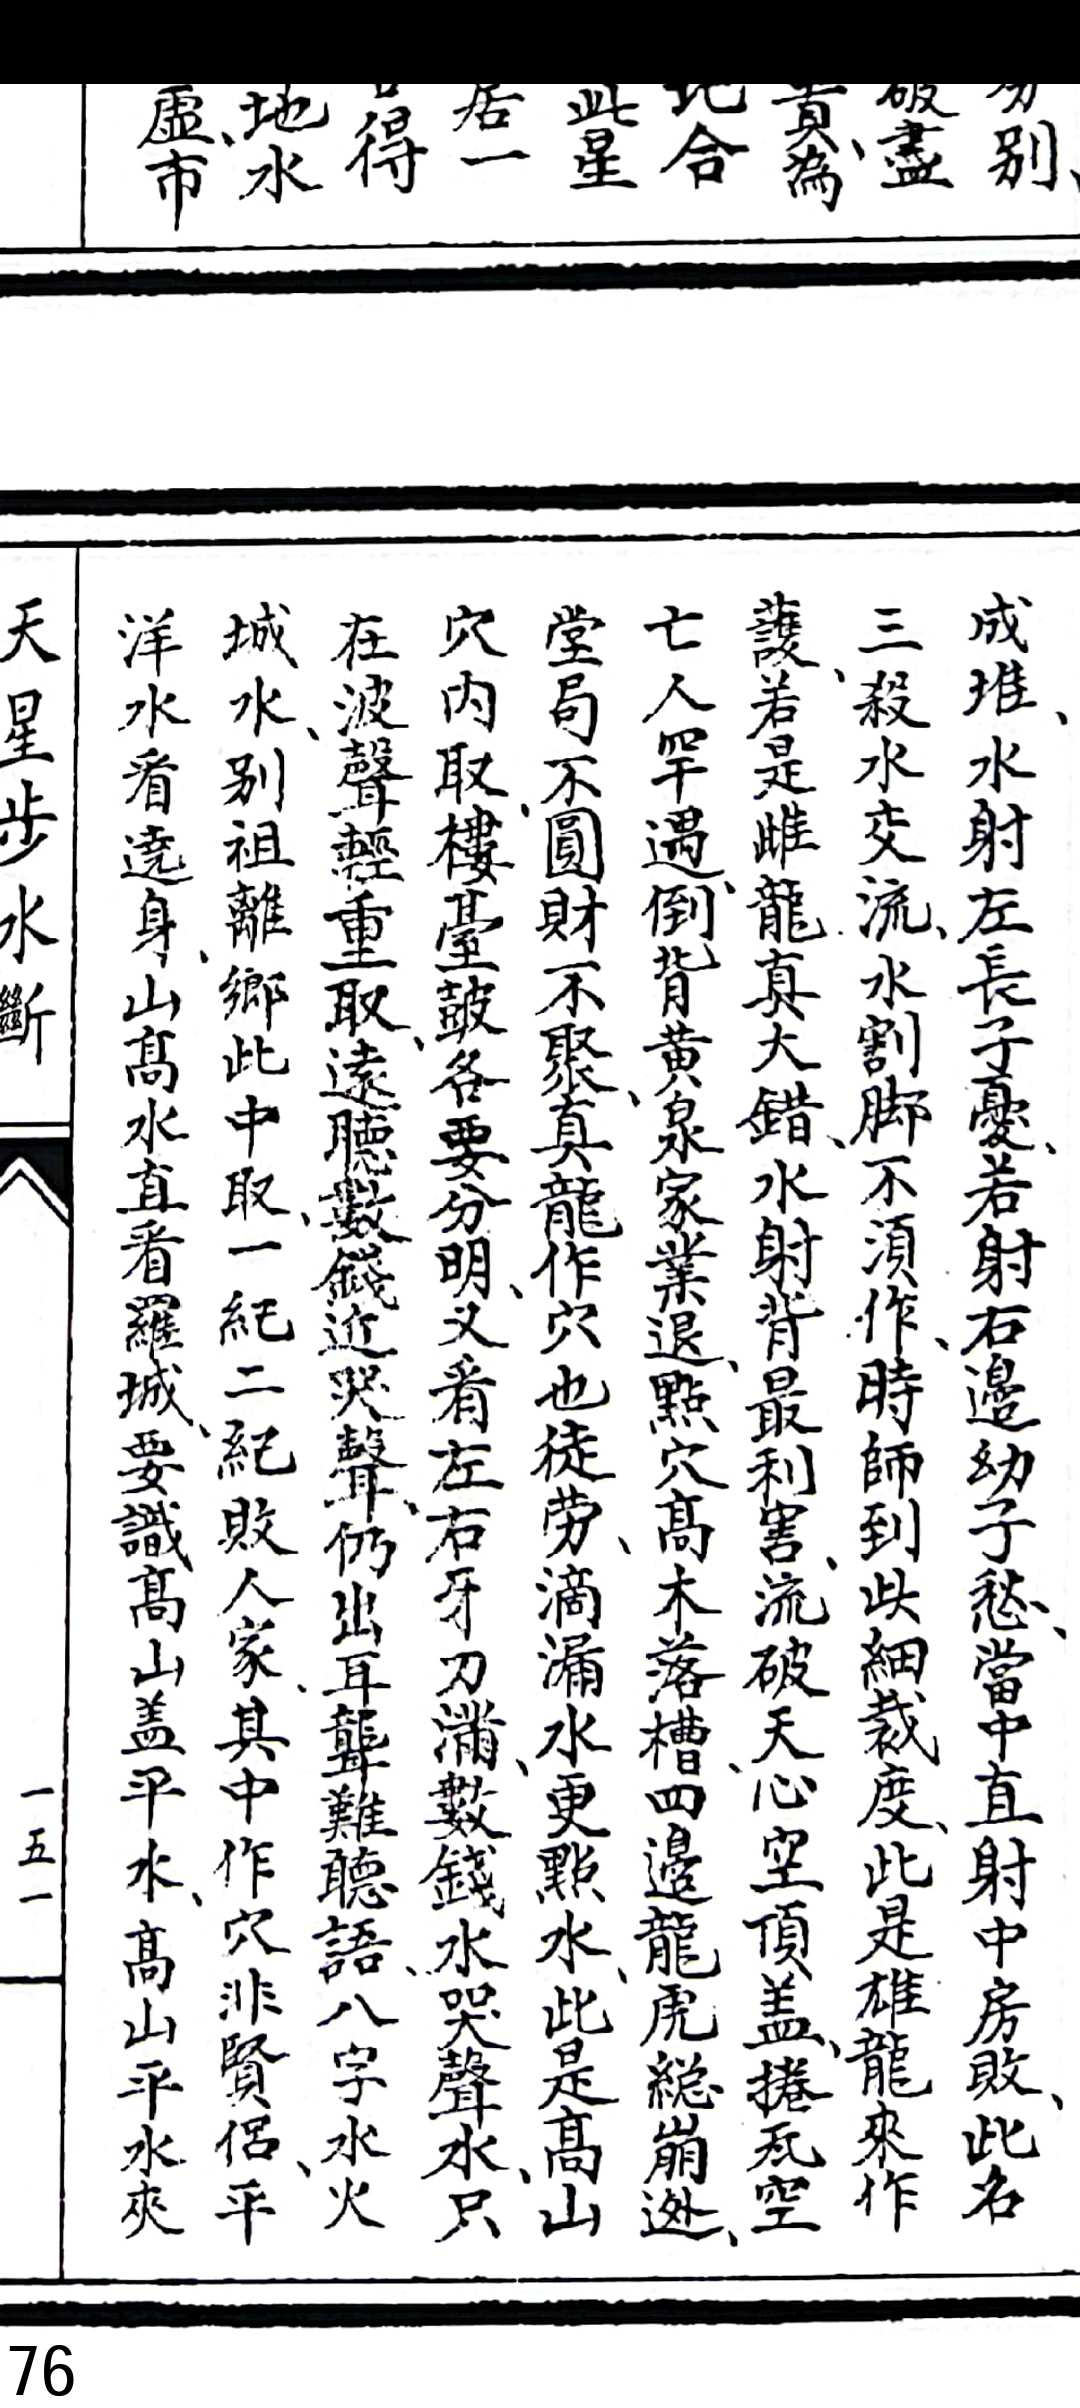 別、
破盡
貴為、
地合
此星
居一
得
地水
虛、市
成堆、水射左長子憂、若射右邊幼子愁、當中直射中房敗、此名
三殺水交流、水割脚不須作、時師到此細裁度、此是雄龍來作
護、若是雌龍真大錯、水射背最利害、流破天心空頂盖、捲瓦空
七人罕遇、倒背黄泉家業退、點穴高木落槽、四邊龍虎総崩逊、
堂局不圓財不聚、真龍作穴也徒劳、滴漏水更點水、此是高山
穴内取、樓臺鼓各要分明、又看左右牙刀滿、數錢水哭聲水、只
在波聲輕重取、遠聴數錢近哭聲、仍出耳聾難聽語、八字水火
城水、别祖離鄉此中取、一紀二紀敗人家、其中作穴非賢侣、平
洋水看遶身、山高水直看羅城、要識高山盖平水、高山平水夾
天星步水斷
一五一
76